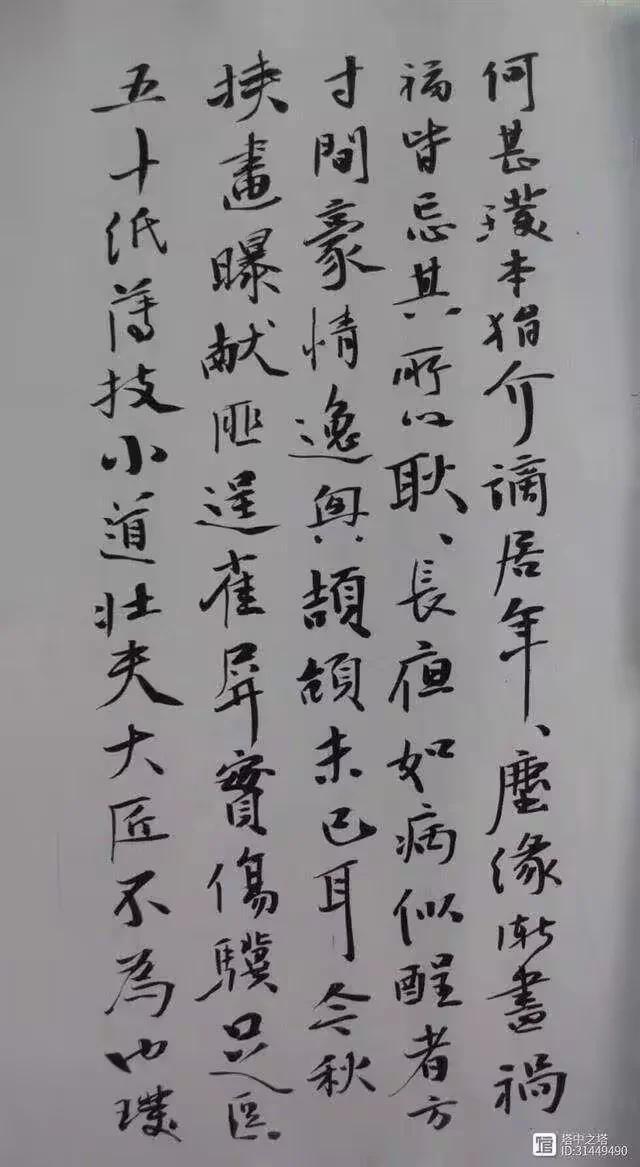 何甚璞本狷介謫居年、塵缘渐盡禍
福皆忌其所以耿、長夜如病似醒者方
寸間豪情逸興頡頏未已耳今秋
挟畫曝献匪逞雀屏實傷驥足區
五十紙薄技小道壮夫大匠不為也璞
塔中之塔
ID:31449490